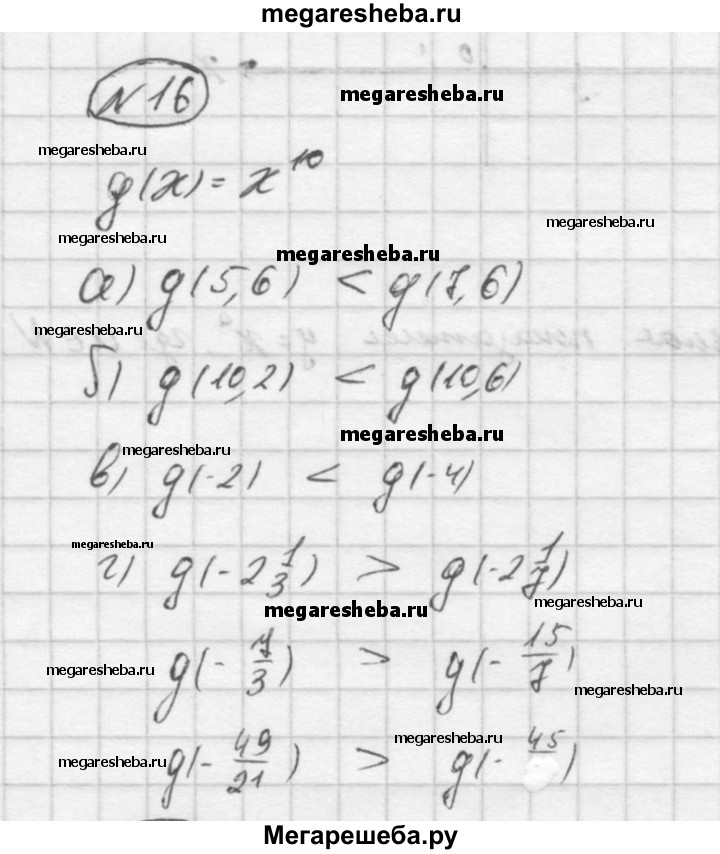 megaresheba.ru
№ 16
megaresheba.ru
megaresheba.ru
g(x) = x^10
megaresheba.ru
megaresheba.ru
megaresheba.ru
а) g(5,6) < g(7,6)
megaresheba.ru
б) g(10,2) < g(10,6)
megaresheba.ru
megaresheba.ru
в) g(-2) < g(-4)
megaresheba.ru
г) g(-2 1/3) > g(-2 1/7)
megaresheba.ru
megaresheba.ru
g(-7/3) > g(-15/7)
megaresheba.ru
megaresheba.ru
megaresheba.ru
g(-49/21) > g(-45/ )
Мегарешеба.ру